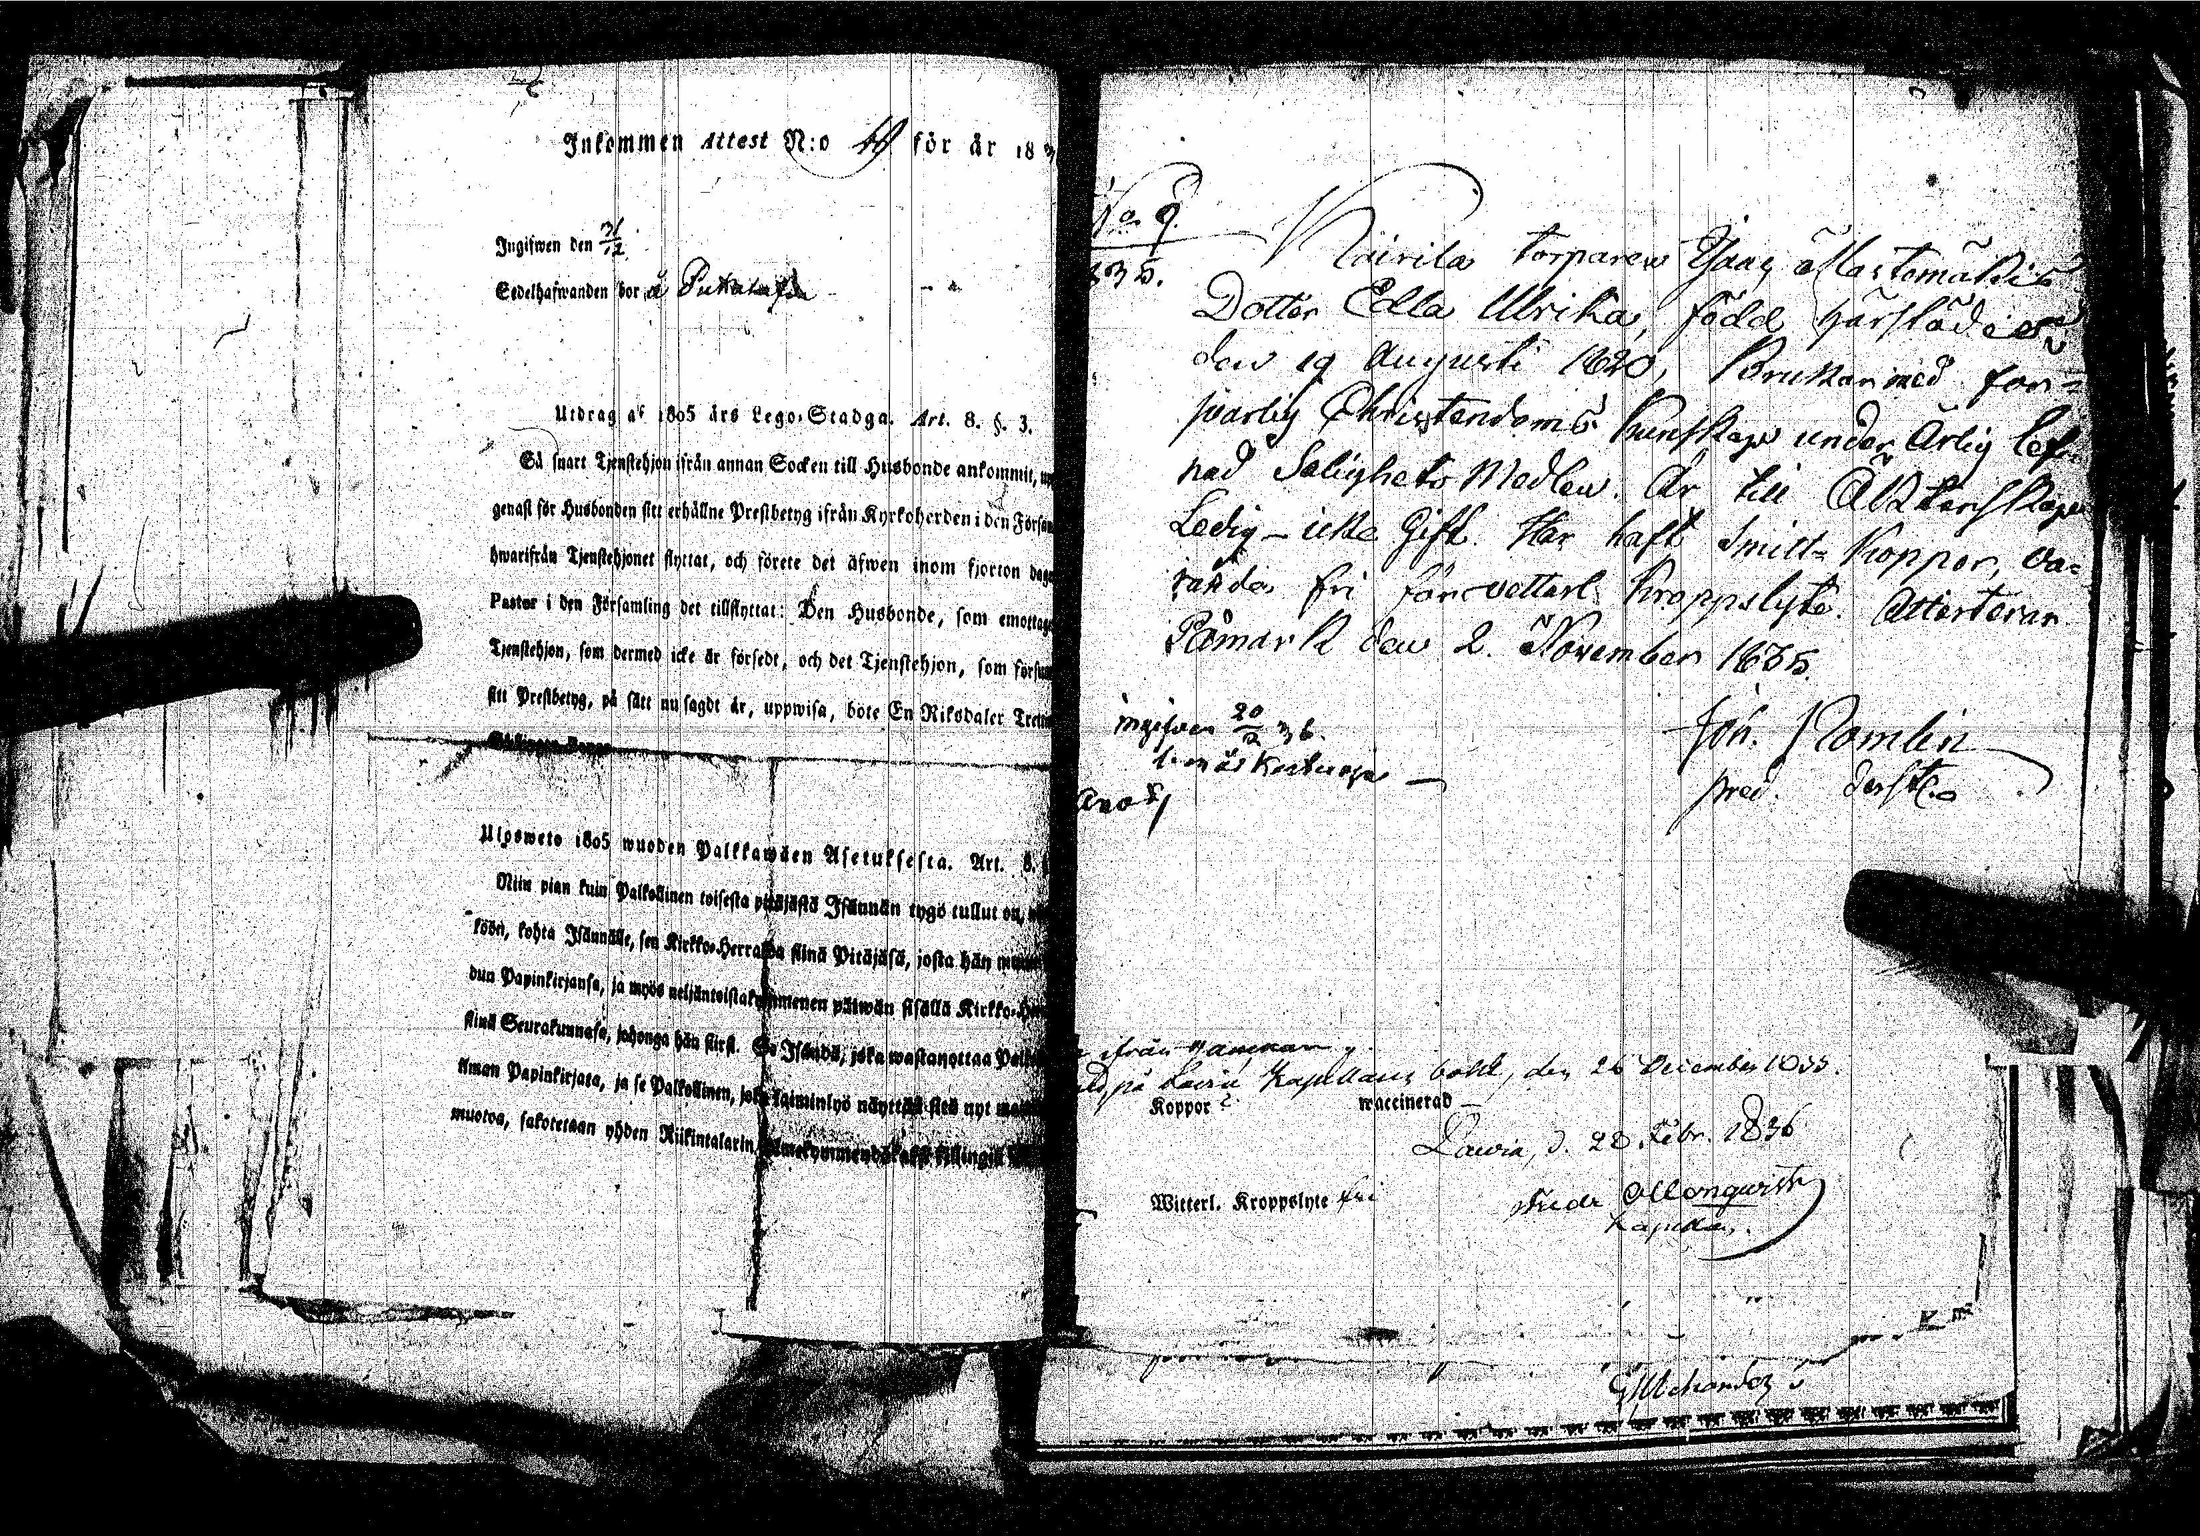 Inkommen Attest N:o 49 för år 183
Ingifwen den 31/12.
Sedelhafwanden bor å
Utdrag af 1805 års Lego-Stadga. Art. 8. §. 3.
Så snart Tjenstehjon ifrån annan Socken till Husbonde ankommit,
genast för Husbonden sitt erhållne Prestbetyg ifrån Kyrkoherden i den Försam
hwarifrån Tjenstehjonet flyttat, och förete det äfwen inom fjorton daga
Pastor i den Församling det tillflyttat: Den Husbonde, som emottage
Tjenstehjon, som dermed icke är försedt, och det Tjenstehjon, som försum
sitt Prestbetyg, på sätt nu sagdt är, uppwisa, böte En Riksdaler Tretti
Ulgosweto 1805 wuoden Palkkawäen Asetuksesta. Art. 8.
Niin pian kuin Palkollinen toisesta pitäjästä Isännän tygö tullut on,
köön, kohta Isännälle, sen Kirkko-Herralda siinä Pitäjäsä, josta hän
dun Papinkirjansa, ja myös neljäntoistakymmenen päiwän sisällä Kirkko-Her
siinä Seurakunnasa, johonga hän siirsi. Se Isändä, joka wastanottaa Palk
ilman Papinkirjata, ja se Palkollinen, joka laiminlyö näyttää sitä nyt
muotoa, sakotetaan yhden Riikintalarin, kolmekymmendäkaksi killingiä
No 9.
1835.
Kairila torparen Isaac
Dotter Edla Ulrika, född härstädes
den 19 Augusti 1820, Brukar med för-
svarlig Christendoms Kunskap under Ärlig lef-
nad Salighets Medlen. Är till Äktenskap
Ledig – icke Gift. Har haft Smitt-Koppor, va-
randa fri för vetterl. Kroppslyte. Attesterar
Påmark den 2. November 1835.
Joh. Romlin
pred. derst.
ingifven 20/2 36.
ifrån
på Lavia Kapellans bohl, den 26 December 1835.
Koppor waccinerad
Lavia, d. 28. Febr. 1836
Witterl. Kroppslyte fri
Kapellan.